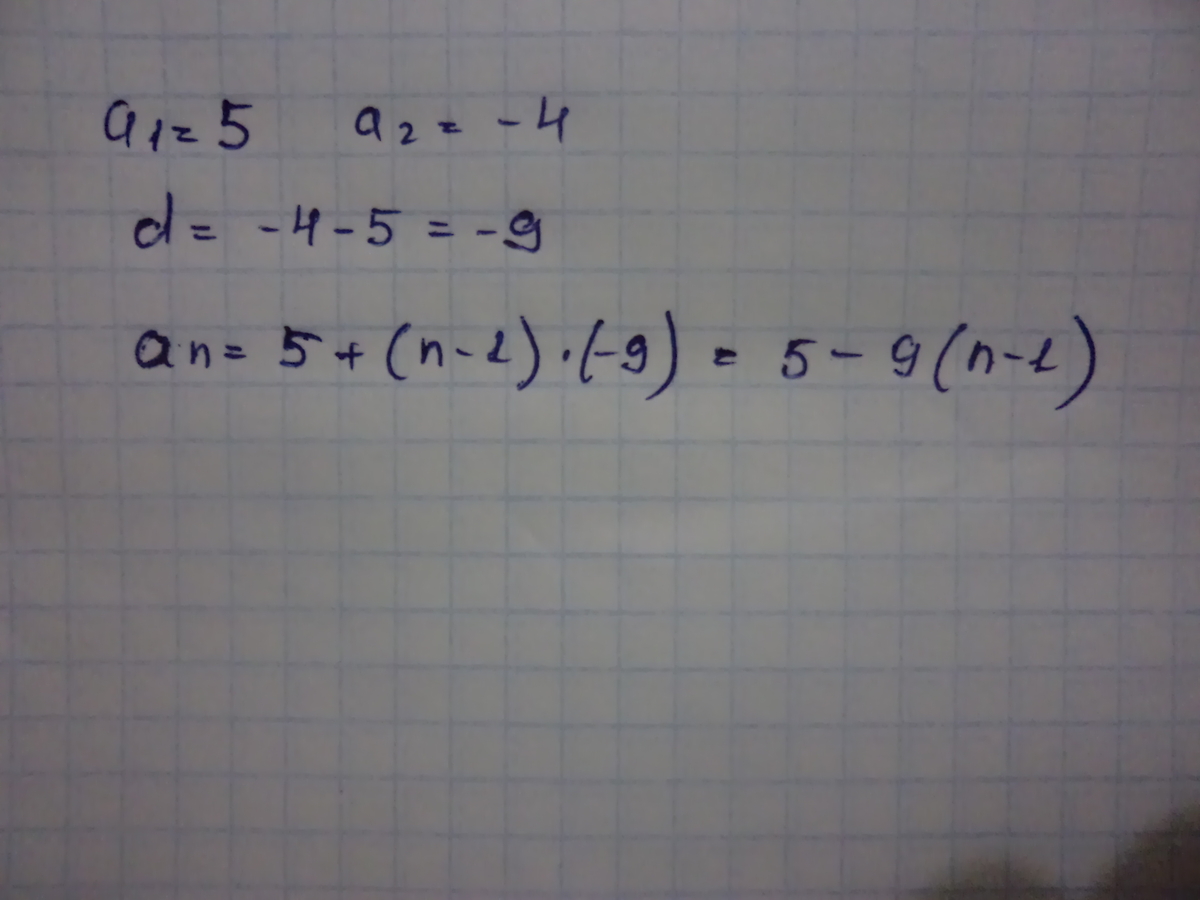 a₁ = 5 a₂ = -4
d = -4 - 5 = -9
an = 5 + (n - 1) · (-9) = 5 - 9(n - 1)